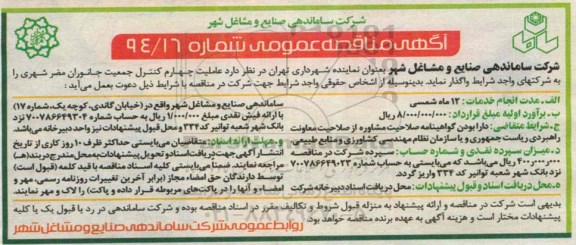 شرکت ساماندهی صنایع و مشاغل شهر
آگهی مناقصه عمومی شماره ۹۴/۱۶
شرکت ساماندهی صنایع و مشاغل شهر بعنوان نماینده شهرداری تهران در نظر دارد عاملیت چهارم کنترل جمعیت جانوران مضر شهری را
به شرکتهای واجد شرایط واگذار نماید. بدینوسیله از اشخاص حقوقی واجد شرایط جهت شرکت در مناقصه با شرایط ذیل دعوت بعمل می‌آید:
الف. مدت انجام خدمات: ۱۲ ماه شمسی
ب. برآورد اولیه مبلغ قرارداد: ۸/۰۰۰/۰۰۰/۰۰۰ ریال
ج. شرایط متقاضی: دارا بودن گواهینامه صلاحیت مشاوره از صلاحیت معاونت
راهبردی ریاست جمهوری و یا سازمان نظام مهندسی کشاورزی و منابع طبیعی
د. میزان سپرده نقدی و شماره حساب: سپرده شرکت در مناقصه
۴۰۰/۰۰۰/۰۰۰ ریال می‌باشد که می‌بایستی به حساب شماره ۷۰۰۷۸۶۶۴۹۰۲۳
نزد بانک شهر شعبه توانیر کد ۲۳۴ واریز گردد.
ه. محل دریافت اسناد و قبول پیشنهادات: محل دریافت اسناد دبیرخانه شرکت
ساماندهی صنایع و مشاغل شهر واقع در (خیابان گاندی، کوچه یک، شماره ۱۷)
با ارائه فیش نقدی مبلغ ۱/۰۰۰/۰۰۰ ریال به حساب شماره ۷۰۰۷۸۶۶۴۹۳۰۴ نزد
بانک شهر شعبه توانیر کد ۲۳۴ و محل قبول پیشنهادات نیز واحد دبیرخانه می‌باشد.
و. مهلت ارائه اسناد: متقاضیان می‌بایستی حداکثر ظرف ۱۰ روز کاری از تاریخ
انتشار آگهی جهت دریافت اسناد و تحویل پیشنهادات به محل مندرج در بند (هـ)
مراجعه نمایند. ضمناً می‌بایستی کلیه اسناد مناقصه با قید کلمه (قبول است)
توسط دارندگان حق امضاء مجاز (برابر آخرین تغییرات روزنامه رسمی، مهر و
امضاء و آنها را در پاکت‌های مربوطه قرار داده و پاکت) را لاک و مهر نمایند.
بدیهی است شرکت در مناقصه و ارائه پیشنهاد به منزله قبول شروط و تکالیف مقرر در اسناد مناقصه بوده و شرکت ساماندهی در رد یا قبول یک یا کلیه
پیشنهادات مختار است و هزینه آگهی به عهده برنده مناقصه خواهد بود.
روابط عمومی شرکت ساماندهی صنایع و مشاغل شهر